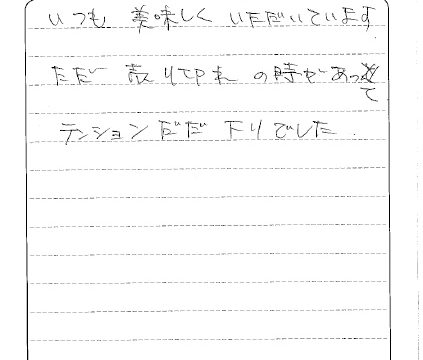 いつも 美味しく いただいています
ただ 売り切れ の時があって
テンション だだ 下りでした.